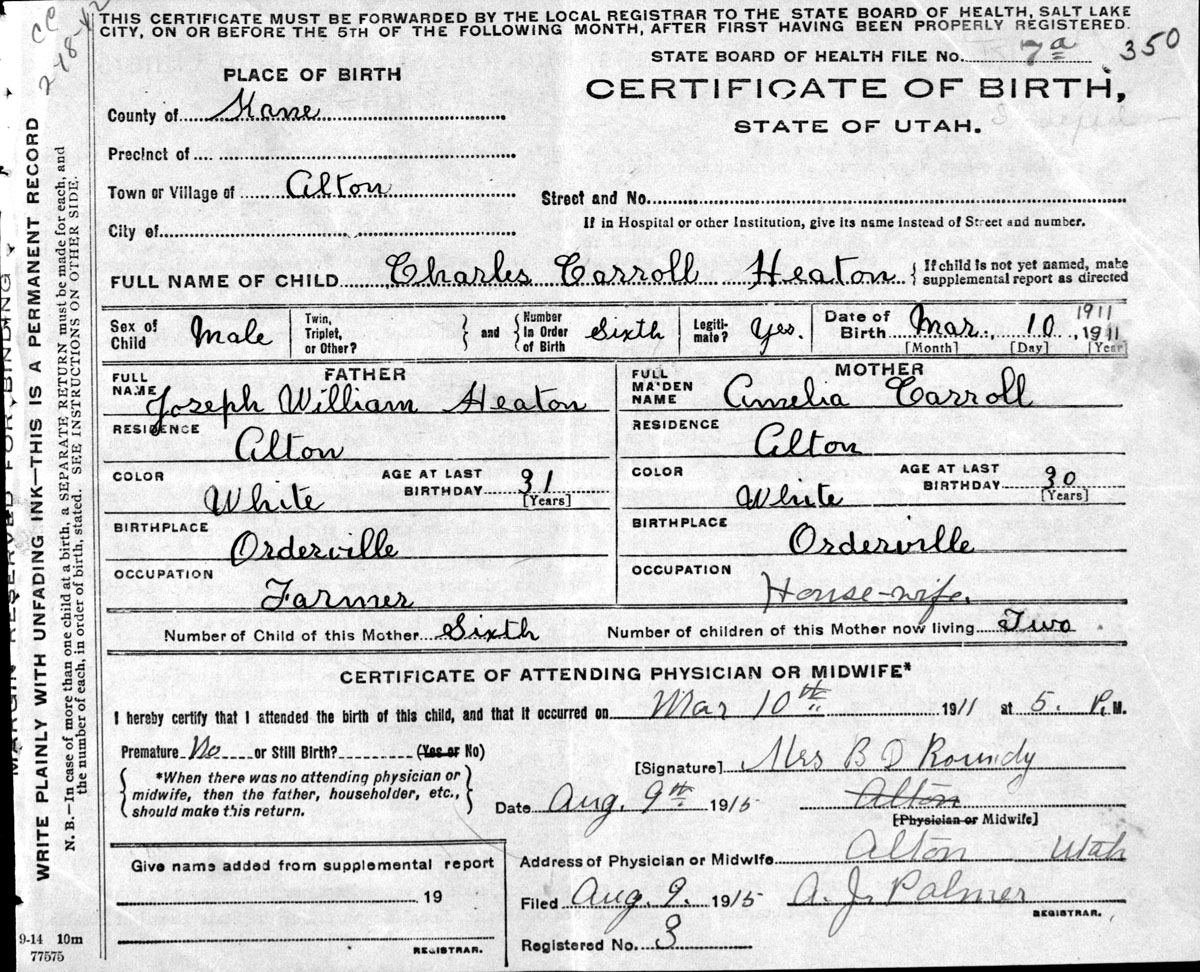 THIS CERTIFICATE MUST BE FORWARDED BY THE LOCAL REGISTRAR TO THE STATE BOARD OF HEALTH, SALT LAKE
CITY, ON OR BEFORE THE 5TH OF THE FOLLOWING MONTH, AFTER FIRST HAVING BEEN PROPERLY REGISTERED.
STATE BOARD OF HEALTH FILE No. 7a 350
PLACE OF BIRTH
CERTIFICATE OF BIRTH,
STATE OF UTAH.
County of Kane
Precinct of
Town or Village of Alton
Street and No.
If in Hospital or other Institution, give its name instead of Street and number.
City of
FULL NAME OF CHILD Charles Carroll Heaton { If child is not yet named, make
supplemental report as directed
Sex of Child Male
Twin, Triplet, or Other? } and { Number in Order of Birth Sixth
Legitimate? Yes.
Date of Birth Mar. 10 1911, 1911
[Month] [Day] [Year]
FATHER
FULL NAME Joseph William Heaton
RESIDENCE Alton
COLOR White AGE AT LAST BIRTHDAY 31 [Years]
BIRTHPLACE Orderville
OCCUPATION Farmer
MOTHER
FULL MAIDEN NAME Amelia Carroll
RESIDENCE Alton
COLOR White AGE AT LAST BIRTHDAY 30 [Years]
BIRTHPLACE Orderville
OCCUPATION House-wife.
Number of Child of this Mother Sixth Number of children of this Mother now living Two
CERTIFICATE OF ATTENDING PHYSICIAN OR MIDWIFE*
I hereby certify that I attended the birth of this child, and that it occurred on Mar 10th 1911 at 5. P. M.
Premature No or Still Birth? (Yes or No)
[Signature] Mrs B D Roundy
{ *When there was no attending physician or
midwife, then the father, householder, etc.,
should make this return. }
Date Aug. 9th 1915 Alton
[Physician or Midwife]
Give name added from supplemental report
19
REGISTRAR.
Address of Physician or Midwife Alton Utah
Filed Aug. 9. 1915 A. J. Palmer
REGISTRAR.
Registered No. 3
9-14 10m
77575
MARGIN RESERVED FOR BINDING
WRITE PLAINLY WITH UNFADING INK—THIS IS A PERMANENT RECORD
N. B.—In case of more than one child at a birth, a SEPARATE RETURN must be made for each, and
the number of each, in order of birth, stated. SEE INSTRUCTIONS ON OTHER SIDE.